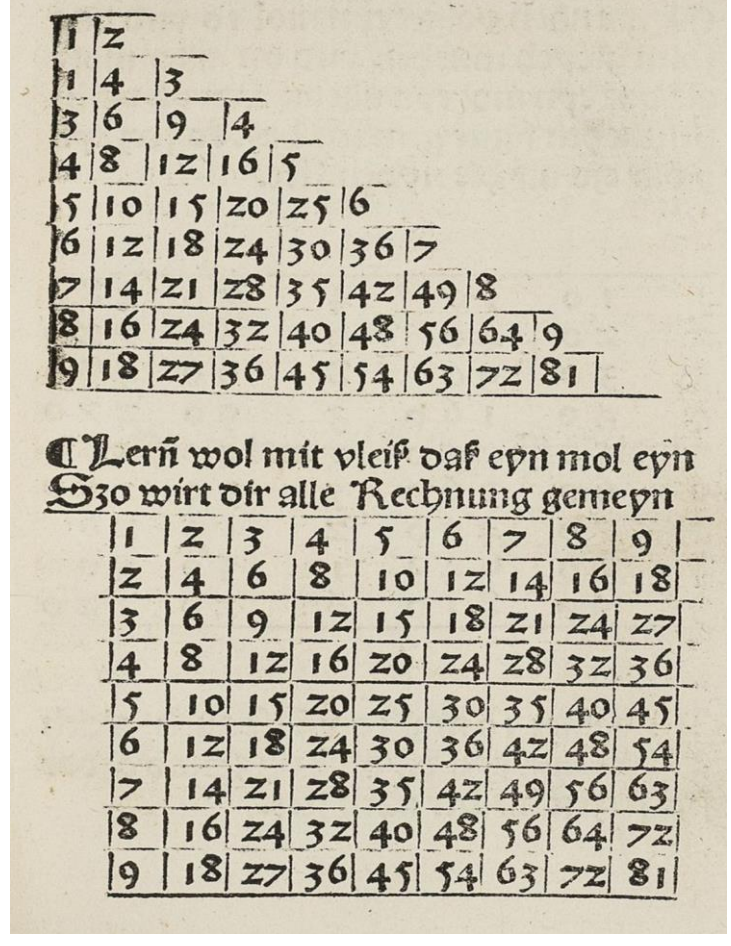 1 2
1 4 3
3 6 9 4
4 8 12 16 5
5 10 15 20 25 6
6 12 18 24 30 36 7
7 14 21 28 35 42 49 8
8 16 24 32 40 48 56 64 9
9 18 27 36 45 54 63 72 81
¶ Lern̄ wol mit vleiß daß eyn mol eyn
Szo wirt dir alle Rechnung gemeyn
1 2 3 4 5 6 7 8 9
2 4 6 8 10 12 14 16 18
3 6 9 12 15 18 21 24 27
4 8 12 16 20 24 28 32 36
5 10 15 20 25 30 35 40 45
6 12 18 24 30 36 42 48 54
7 14 21 28 35 42 49 56 63
8 16 24 32 40 48 56 64 72
9 18 27 36 45 54 63 72 81